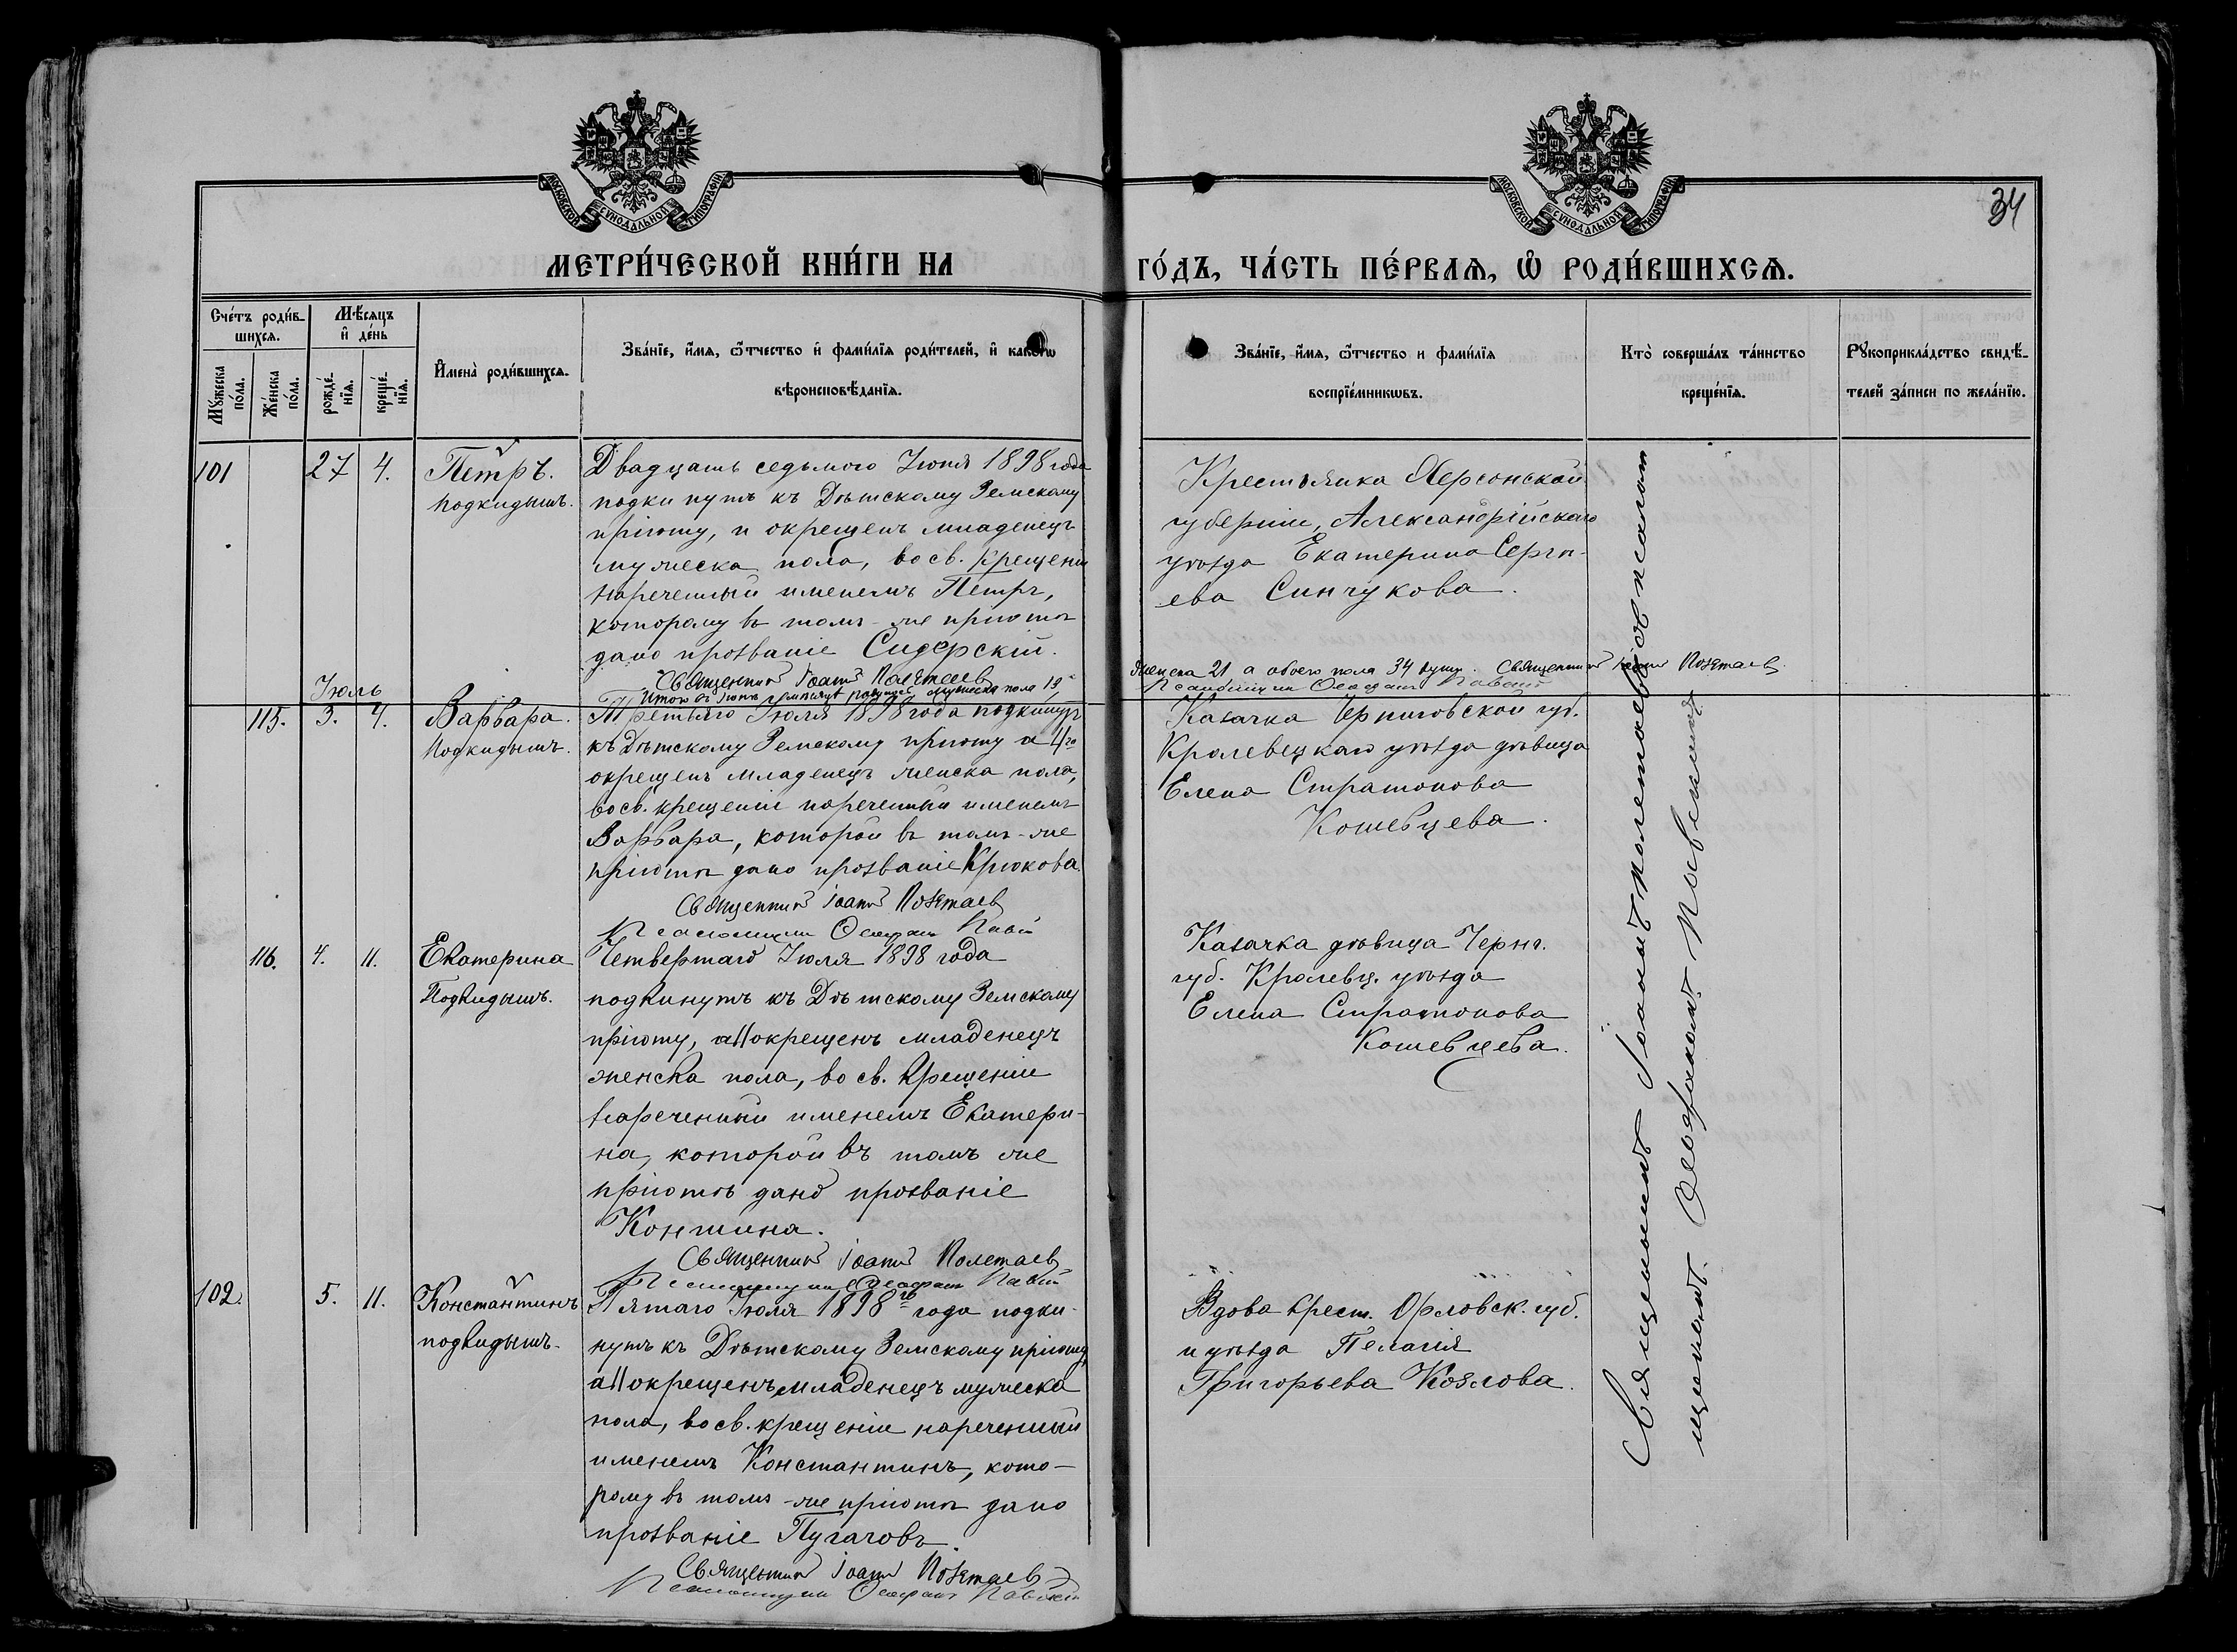 34
МОСКОВСКОЙ СѴНОДАЛЬНОЙ ТИПОГРАФІИ
МОСКОВСКОЙ СѴНОДАЛЬНОЙ ТИПОГРАФІИ
МЕТРИ́ЧЕСКОЙ КНИ́ГИ НА
ГО́ДЪ, ЧА́СТЬ ПЕ́РВАЯ, Ѽ РОДИ́ВШИХСЯ.
Сче́тъ роди́в-
шихся.
Мꙋ́жеска по́ла.
Же́нска по́ла.
Мѣ́сяцъ
и҆ де́нь
рожде́-
нїя.
креще́-
нїя.
И҆мена̀ роди́вшихся.
Зва́нїе, и҆́мя, ѻ҆́тчество и҆ фами́лїя роди́телей, и҆ како́гѡ
вѣроисповѣ́данїя.
Зва́нїе, и҆́мя, ѻ҆́тчество и фами́лїя
воспрїе́мникѡвъ.
Кто̀ соверша́лъ та́инство
креще́нїя.
Рꙋкоприкла́дство свидѣ́-
телей за́писи по жела́нїю.
101
27
4.
Петръ.
Подкидышъ.
Двадцать седьмого Іюня 1898 года
подкинутъ къ Дѣтскому Земскому
пріюту, и окрещенъ младенецъ
мужеска пола, во св. Крещеніи
нареченный именемъ Петръ,
которому въ томъ-же пріютѣ
дано прозваніе Сидерскій.
Священникъ Іоаннъ Полетаев
Итого въ Іюнѣ родилось мужеска пола 13
Крестьянка Херсонской
губерніи, Александрійскаго
уѣзда Екатерина Сергѣ-
ева Синчукова.
женска 21 а обоего пола 34 душъ. Священникъ Іоаннъ Полетаев
Псаломщикъ Ѳеофанъ
Іюль
115.
3.
4.
Варвара.
Подкидышъ.
Третьяго Іюля 1898 года подкинутъ
къ Дѣтскому Земскому пріюту а 4го
окрещенъ младенецъ женска пола,
во св. крещеніи нареченный именемъ
Варвара, которой въ томъ-же
пріютѣ дано прозваніе Крюкова.
Священникъ Іоаннъ Полетаев
Псаломщикъ Ѳеофанъ
Казачка Черниговской губ.
Кролевецкаго уѣзда дѣвица
Елена Стратонова
Кошевцева.
116.
4.
11.
Екатерина
Подкидышъ.
Четвертаго Іюля 1898 года
подкинутъ къ Дѣтскому Земскому
пріюту, а 11 окрещенъ младенецъ
женска пола, во св. Крещеніи
нареченный именемъ Екатери-
на, которой въ томъ же
пріютѣ дано прозваніе
Контина.
Священникъ Іоаннъ Полетаев
Псаломщикъ Ѳеофанъ
Казачка дѣвица Черниг.
губ. Кролевц. уѣзда
Елена Стратонова
Кошевцева.
102.
5.
11.
Константинъ
подкидышъ.
Пятаго Іюля 1898го года подки-
нутъ къ Дѣтскому Земскому пріюту,
а 11 окрещенъ младенецъ мужеска
пола, во св. крещеніи нареченный
именемъ Константинъ, кото-
рому въ томъ-же пріютѣ дано
прозваніе Пугачовъ.
Священникъ Іоаннъ Полетаев
Псаломщикъ Ѳеофанъ
Вдова крест. Орловск. губ.
и уѣзда Пелагія
Григорьева Козлова.
Священникъ Іоаннъ Полетаевъ съ псалом-
щикомъ Ѳеофаномъ